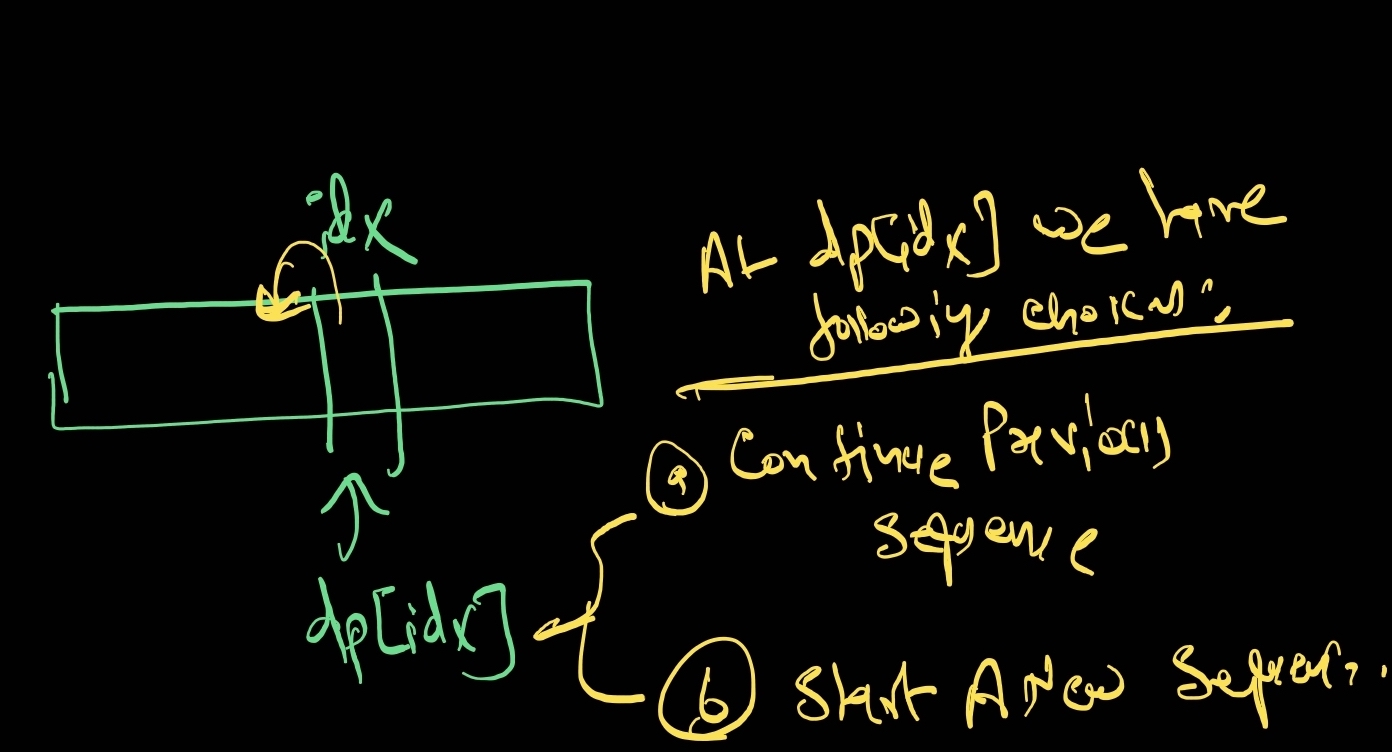 idx
At dp[idx] we have
following choices:
a Continue Previous
Sequence
dp[idx]
b Start A New Sequence.